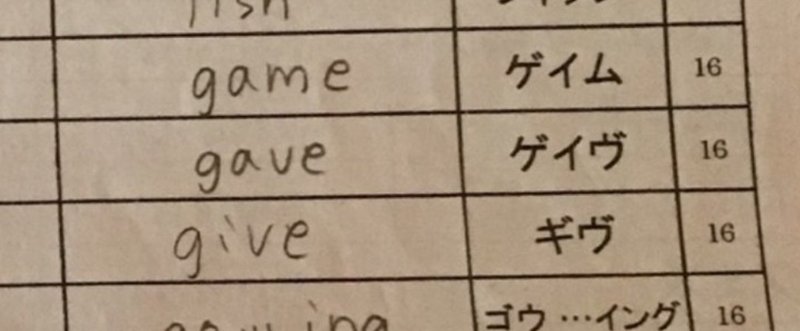 fish
game ゲイム 16
gave ゲイヴ 16
give ギヴ 16
ゴウ…イング 16